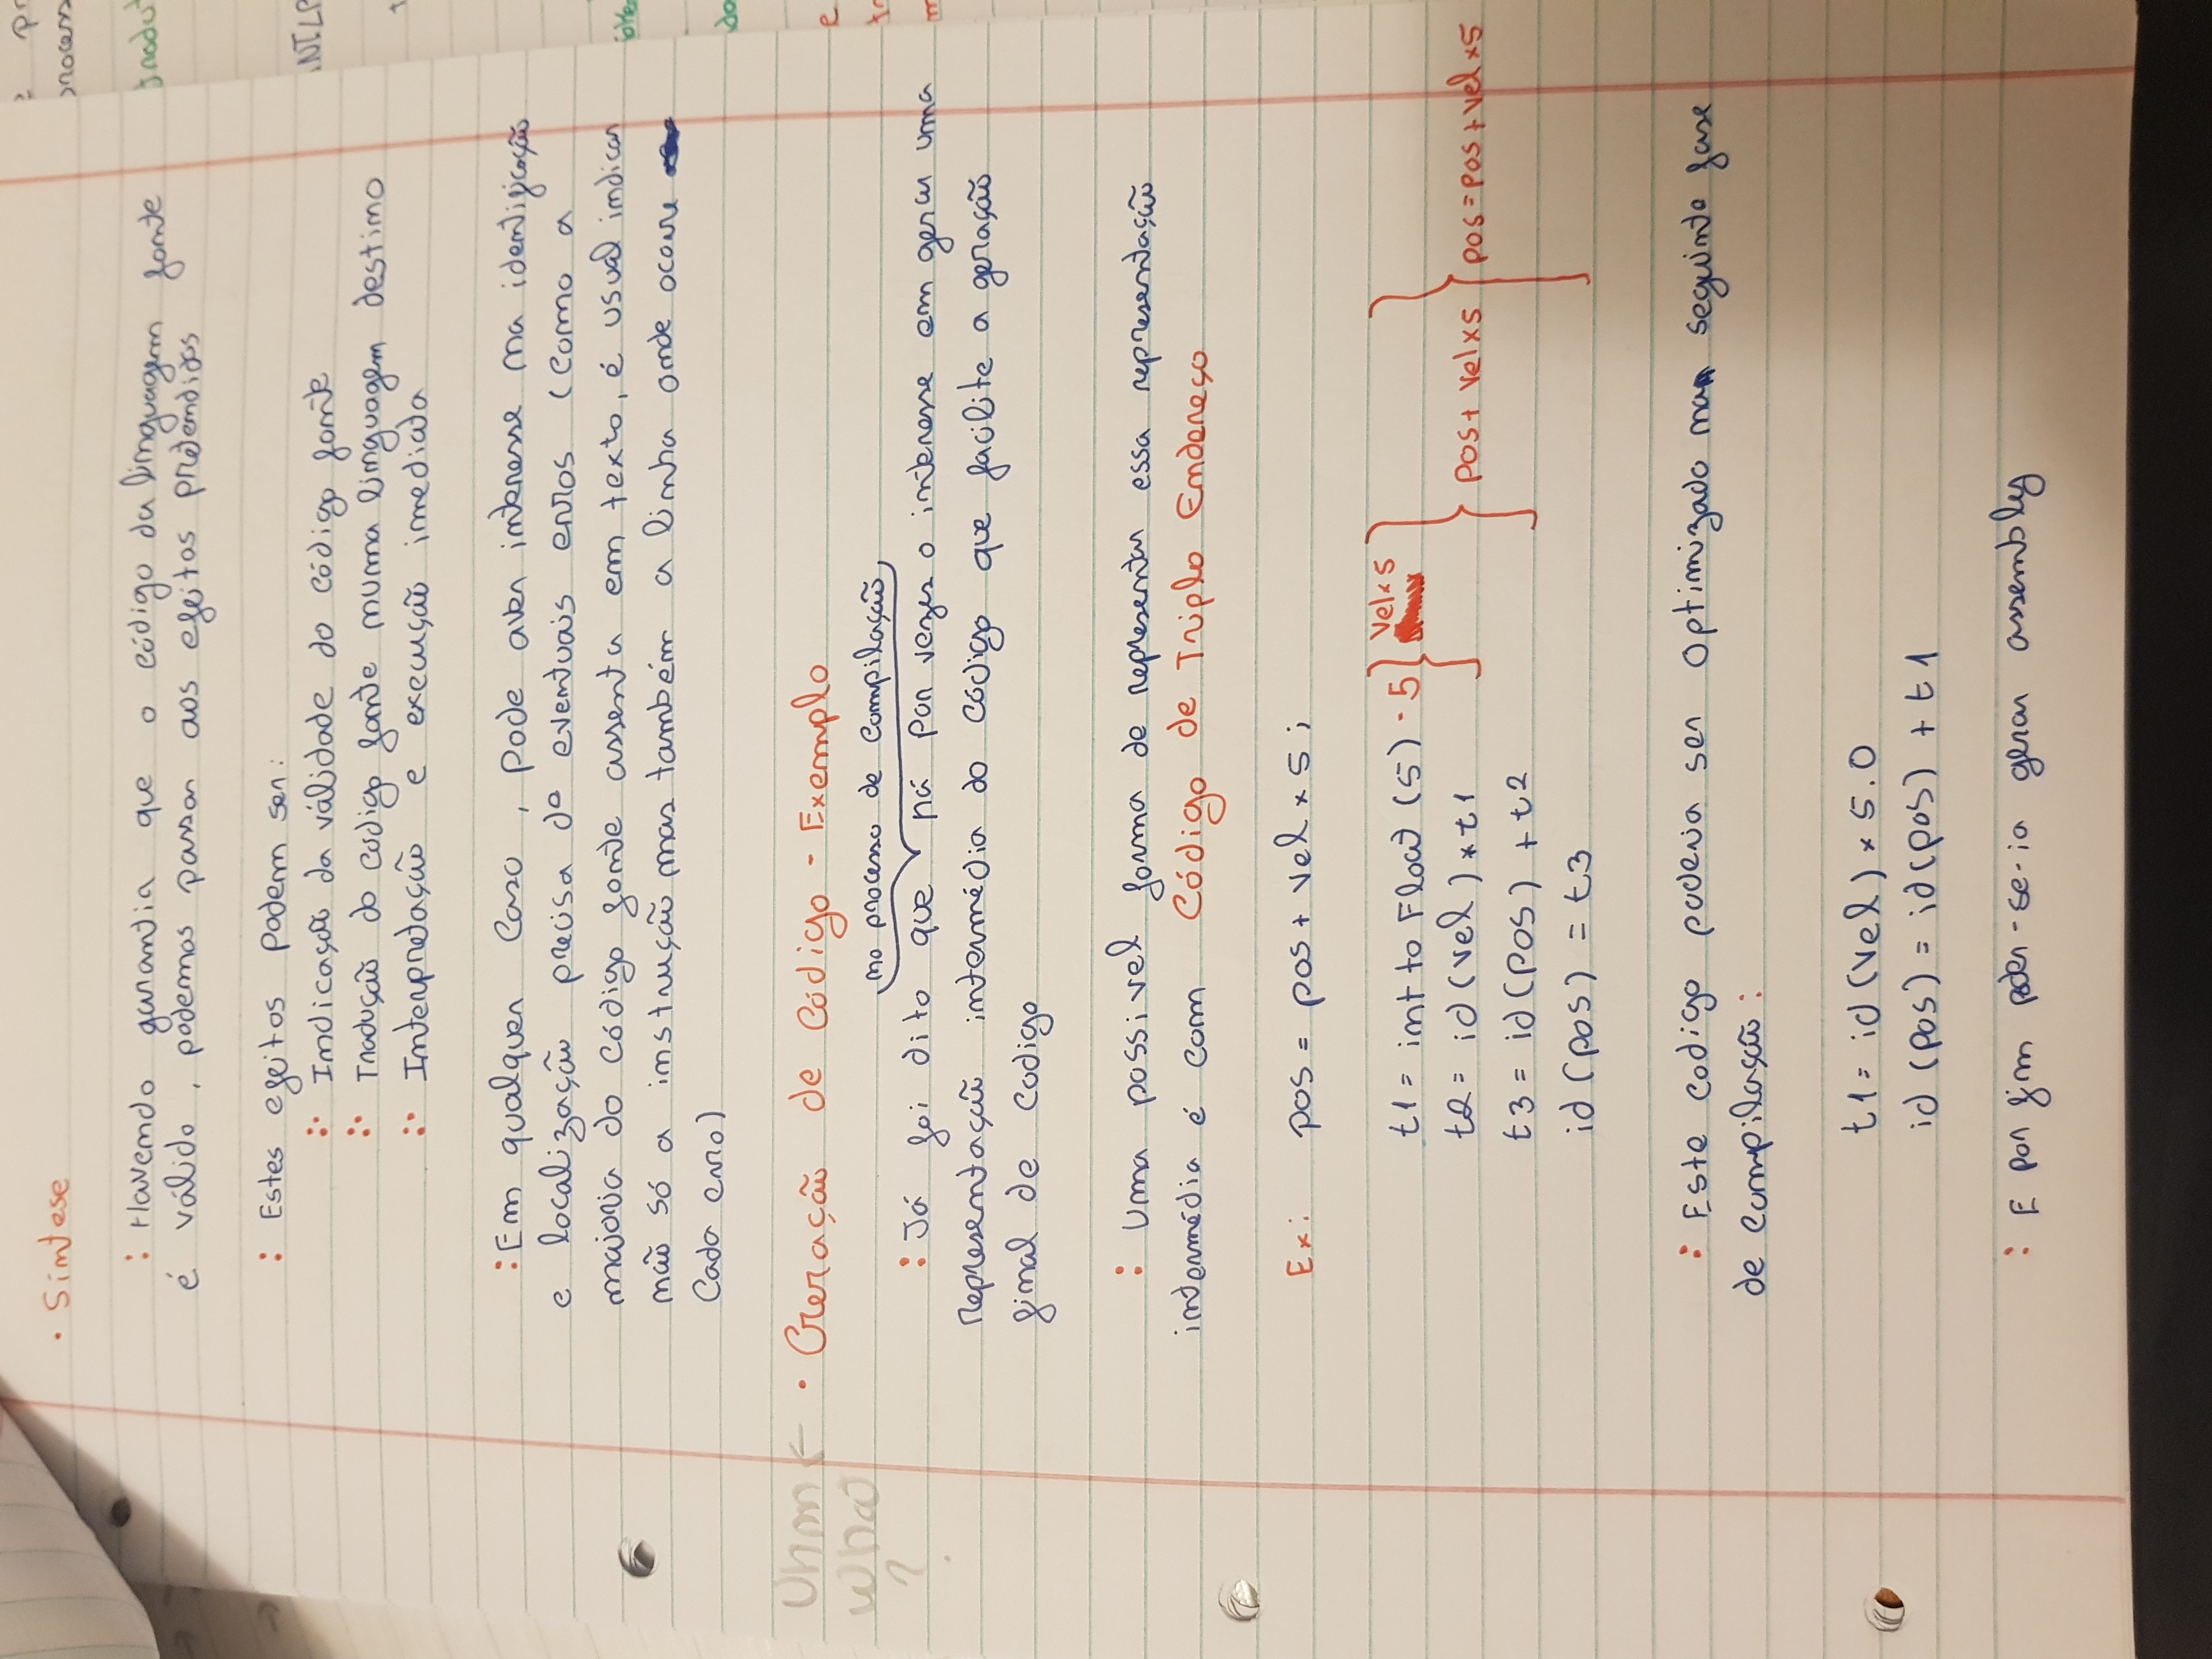 · Síntese
: Havendo garantia que o código da linguagem fonte
é válido, podemos passar aos efeitos pretendidos
: Estes efeitos podem ser:
:· Indicação da válidade do código fonte
:· Tradução do codigo fonte numa linguagem destino
:· Interpretação e execução imediata
: Em qualquer caso, pode aver interesse na identificação
e localização precisa de eventuais erros (como a
maioria do código fonte assenta em texto, é usual indicar
não só a instrução mas também a linha onde ocorre
cada erro)
Uhm ← · Geração de Código - Exemplo
What
?
no processo de compilação
: Já foi dito que há por vezes o interesse em gerar uma
representação intermédia do código que facilite a geração
final de codigo
: Uma possivel forma de representar essa representação
intermédia é com Código de Triplo Endereço
Ex: pos = pos + vel × 5;
t1 = int to Float (5) · 5 } vel×5
t2 = id (vel) * t1
} pos + vel×5 } pos = pos + vel×5
t3 = id (pos) + t2
id (pos) = t3
: Este codigo poderia ser optimizado na seguinte fase
de compilação:
t1 = id (vel) × 5.0
id (pos) = id (pos) + t1
: E por fim poder-se-ia gerar assembly